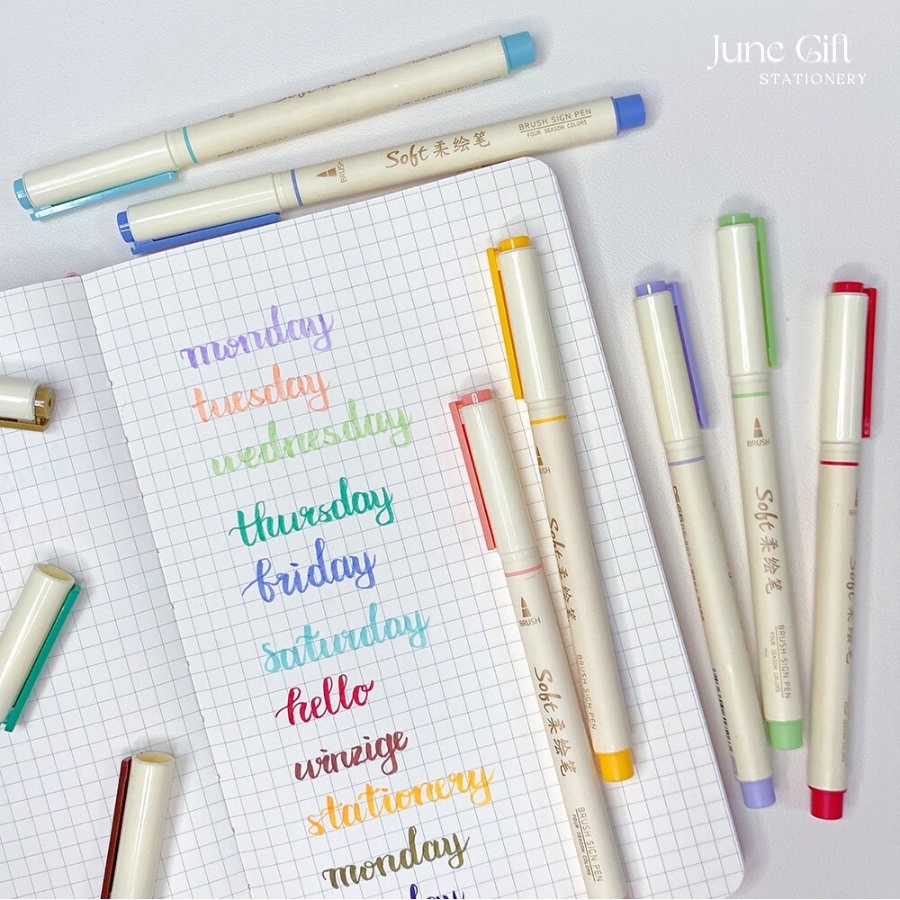 June Gift
STATIONERY
BRUSH SIGN PEN
FOUR SEASON COLORS
Soft 柔绘笔
BRUSH
monday
tuesday
wednesday
thursday
friday
saturday
hello
winzige
stationery
monday
BRUSH
Soft 柔绘笔
BRUSH SIGN PEN
BRUSH
Soft 柔绘笔
BRUSH SIGN PEN
FOUR SEASON COLORS
BRUSH
Soft 柔绘笔
BRUSH SIGN PEN
FOUR SEASON COLORS